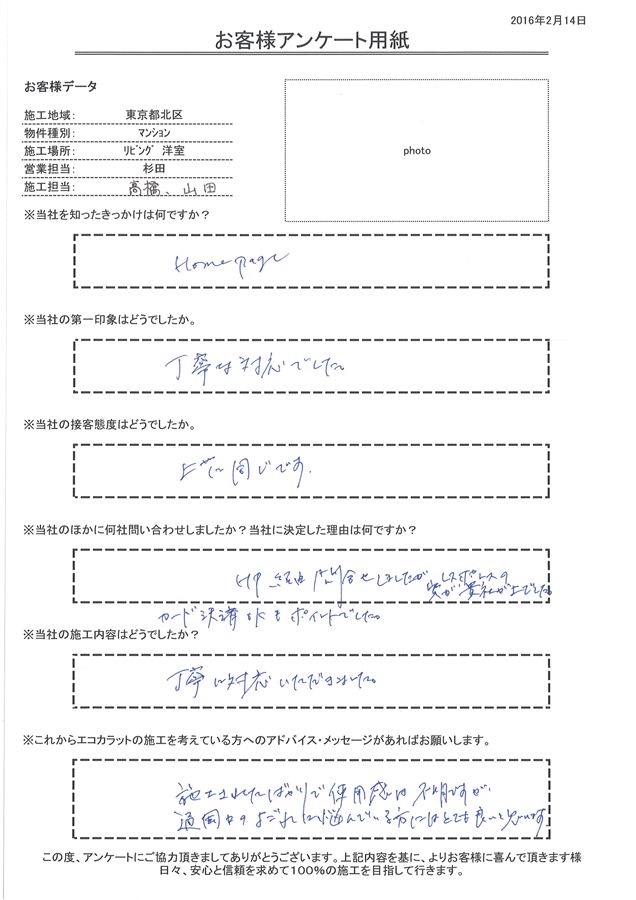 2016年2月14日
お客様アンケート用紙
お客様データ
photo
施工地域: 東京都北区
物件種別: マンション
施工場所: リビング 洋室
営業担当: 杉田
施工担当: 高橋、山田
※当社を知ったきっかけは何ですか？
Homepage
※当社の第一印象はどうでしたか。
丁寧な対応でした。
※当社の接客態度はどうでしたか。
上に同じです.
※当社のほかに何社問い合わせしましたか？当社に決定した理由は何ですか？
HP 経由 問合せしましたが レスポンスの
質が 貴社が上でした
カード決済 OK も ポイントでした。
※当社の施工内容はどうでしたか？
丁寧に対応いただきました。
※これからエコカラットの施工を考えている方へのアドバイス・メッセージがあればお願いします。
施工されたばかりで使用感は 不明ですが、
悩んでいる方にはとても良いと思います
この度、アンケートにご協力頂きましてありがとうございます。上記内容を基に、よりお客様に喜んで頂きます様
日々、安心と信頼を求めて100%の施工を目指して行きます。